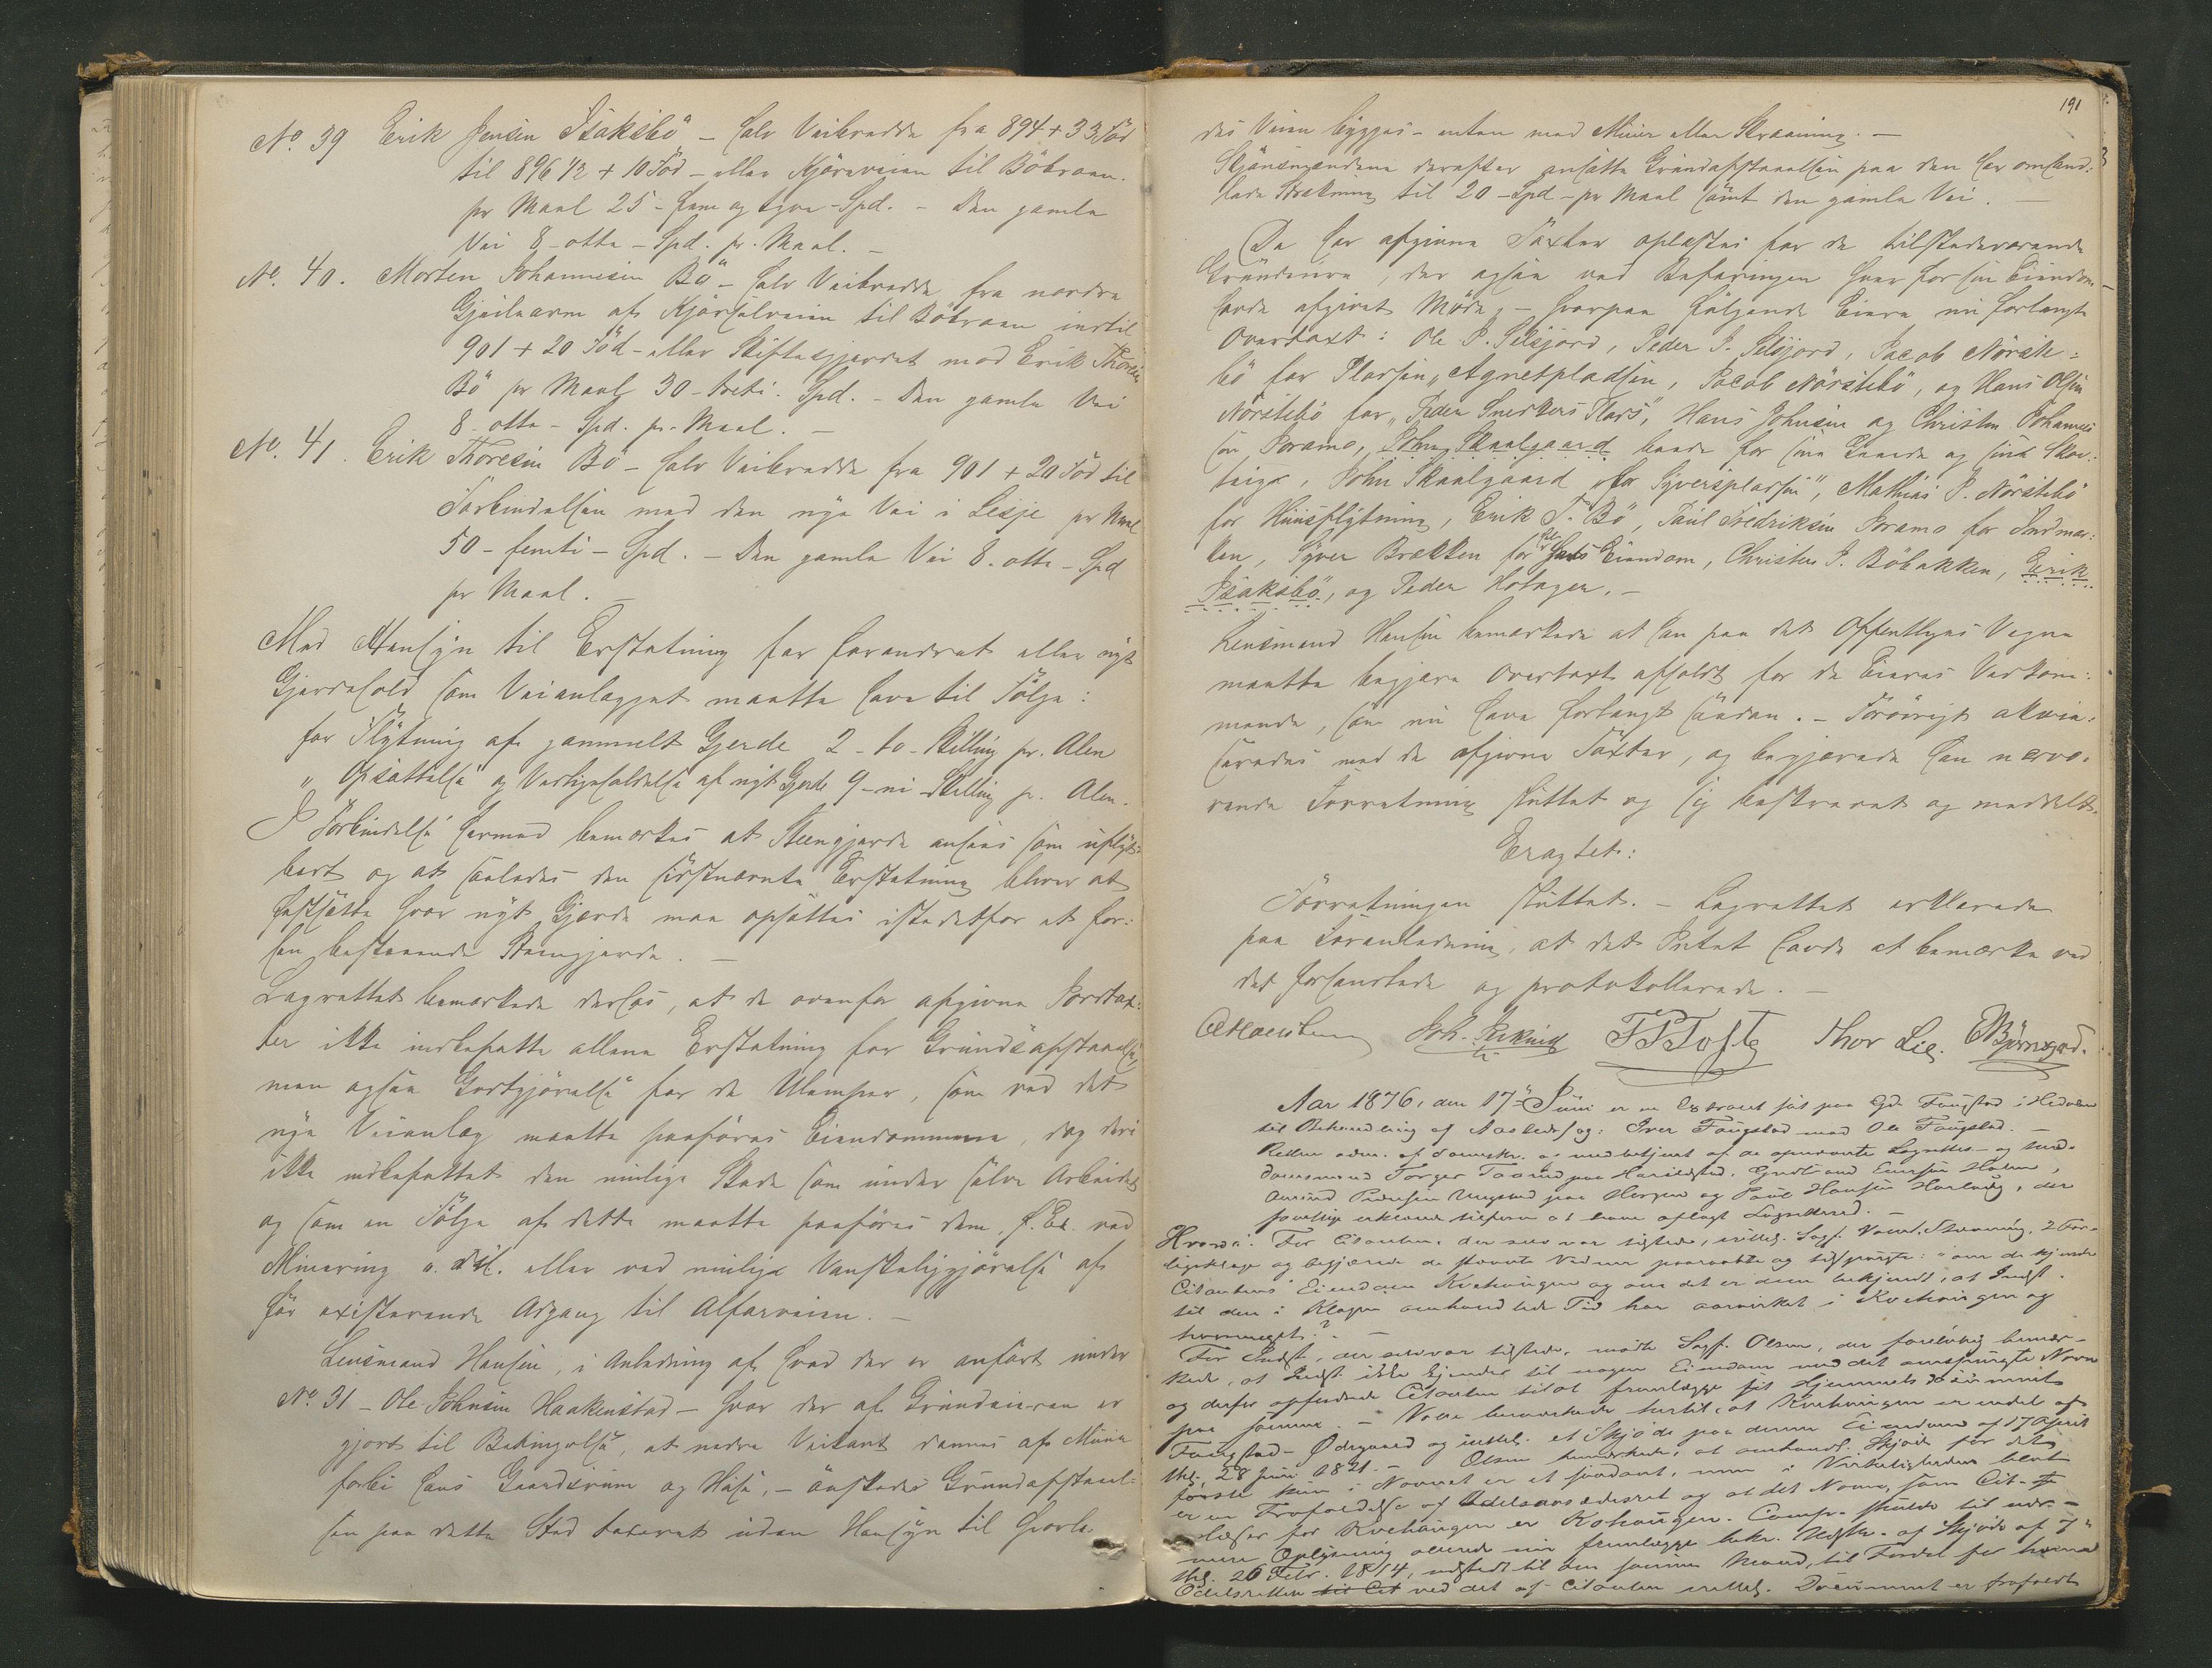 No. 39 Erik Jensen Isaksbö – halv Veibredde fra 894 + 33 Fod
til 896 1/2 + 10 Fod – eller Kjøreveien til Böbroen.
pr Maal 25 – fem og tyve – Spd. – Den gamle
Vei 8 – otte – Spd. pr. Maal. –
No. 40. Morten Johannesen Bö – halv Veibredde fra nordre
af Kjørselveien til Böbroen indtil
901 + 20 Fod – eller Skiftesgjerdet mod Erik Thoresen
Bö pr Maal 30 – treti – Spd. – Den gamle Vei
8 – otte – Spd. pr. Maal. –
No. 41. Erik Thoresen Bö – halv Veibredde fra 901 + 20 Fod til
Forbindelsen med den nye Vei i Lesje pr Maal
50 – femti – Spd. – Den gamle Vei 8 – otte – Spd
pr Maal. –
Med Hensyn til Erstatning for forandret eller nyt
Gjerdehold som Veianlægget maatte have til Følge:
for Flytning af gammelt Gjerde 2 – to – Skilling pr. Alen
„ Opsættelse og Vedligeholdelse af nyt Gjerde 9 – ni – Skilling pr. Alen.
I Forbindelse hermed bemærkes at Steengjerde ansees som uflyt-
bart og at saaledes den sidstnævnte Erstatning bliver at
fastsætte hvor nyt Gjerde maa opsættes istedetfor et før-
hen bestaaende Steengjerde. –
Lagrettet bemærkede derhos, at de ovenfor afgivne Jordtax-
ter ikke indbefatte allene Erstatning for Grundafstaaelse,
men ogsaa Godtgjørelse for de Ulemper, som ved det
nye Veianlæg maatte paaføres Eiendommene, dog deri
ikke indbefattet den mulige Skade som under selve Arbeidet
og som en Følge af dette maatte paaføres dem, f. Ex. ved
Minering o. dsl. eller ved mulige Vanskeliggjørelse af
før existerende Adgang til Alfarveien. –
Lensmand Hansen, i Anledning af hvad der er anført under
No. 31 – Ole Johnsen Haakenstad – hvor der af Grundeieren er
gjort til Betingelse, at nedre Veikant dannes af Muur
forbi hans Gaardsrum og Huse, – ønskede Grundafstaael-
sen paa dette Sted taxeret uden Hensyn til hvorle-
191
des Veien bygges – enten med Muur eller Skraaning. –
Skjønsmændene derefter ansatte Grundafstaaelsen paa den her omhand-
lede Strækning til 20 – Spd – pr Maal samt den gamle Vei. –
De her afgivne Taxter oplæstes for de tilstedeværende
Grundeiere, der ogsaa ved Befaringen hver for sin Eiendom
havde afgivet Møde, – hvorpaa følgende Eiere nu forlangte
Overtaxt: Ole P. Selsjord, Peder P. Selsjord, Jacob Nörste-
bö for Pladsen „Agnetpladsen, Jacob Nörstebö, og Hans Olsen
Nörstebö for „Peder Snerkers Plads", Hans Johnsen og Christen Johannes
sen Joramo, John Skaalgaard baade for sin Gaard og sine Skov-
teige, John Skaalgaard for „Syverspladsen", Mathias P. Nörstebö
for Huusflytning, Erik T. Bö, Paul Fredriksen Joramo for Indmar-
ken, Syver Brækken for Eiendom, Christen J. Böbakken, Erik
Isaksbö, og Peder Hotager. –
Lensmand Hansen bemærkede at han paa det Offentliges Vegne
maatte begjære Overtaxt afholdt for de Eieres Vedkom-
mende, som nu have forlangt saadan. – Forøvrigt akvie-
seredes med de afgivne Taxter, og begjærede han nærvæ-
rende Forretning sluttet og sig beskrevet og meddelt.
Eragtet:
Forretningen sluttet. – Lagrettet erklærede
paa Foranledning, at det Intet havde at bemærke ved
det forhandlede og protokollerede. –
Thor Lie. Björnsgrd.
Aar 1876, den 17de Juni er en Extraret sat paa Gd. Faugstad i Hedalen
til Behandling af Aastedssag: Iver Faugstad mod Ole Faugstad. –
Retten adm. af Sorenskr. og medbetjent af de opnævnte Lagrettes- og med-
domsmænd Torger paa Harildstad, Gudbrand Holen,
Amund Pedersen paa Horgen og Paul Hansen, der
forelagt Lagretteed. –
Hvorda: For Citanten, der selv var tilstede, Sagf. Stævning, 2 For-
ligsklage og begjærede de stævnte Vidner paaraabte og tilspurgte: om de kjende
Citantens Eiendom Kvehaugen og om det er dem bekjendt, at Indst.
til den i Klagen omhandlede Tid har i Kvehaugen og
For Indst., der selv var tilstede, mødte Sagf. Olsen, der foreløbig bemær-
kede, at Indst. ikke kjender til nogen Eiendom med det omspurgte Navn
og derfor opfordrede Citanten til at fremlægge sit Hjemmels document
paa samme. – bemærkede hertil, at Kvehaugen er endel af
Faugstad – Ødegaard og et Skjøde paa denne Eiendom af 17 April
thl. 28 Juni 1821. – Olsen bemærkede, at omhandl. Skjøde for det
første kun i Navnet er et saadant, men i Virkeligheden blot
er en Frafaldelse af Odelsret og at det Navn, som Cit.
for Kvehaugen er Kohaugen. Comp. skulde til nær-
mere Oplysning allerede nu fremlægge bekr. Udskr. af Skjøde af 7
thl. 26 Febr. 1814, udstedt til den samme Mand, til Fordel for hvem
Odelsretten til Cit ved det af Citanten Document er frafaldt